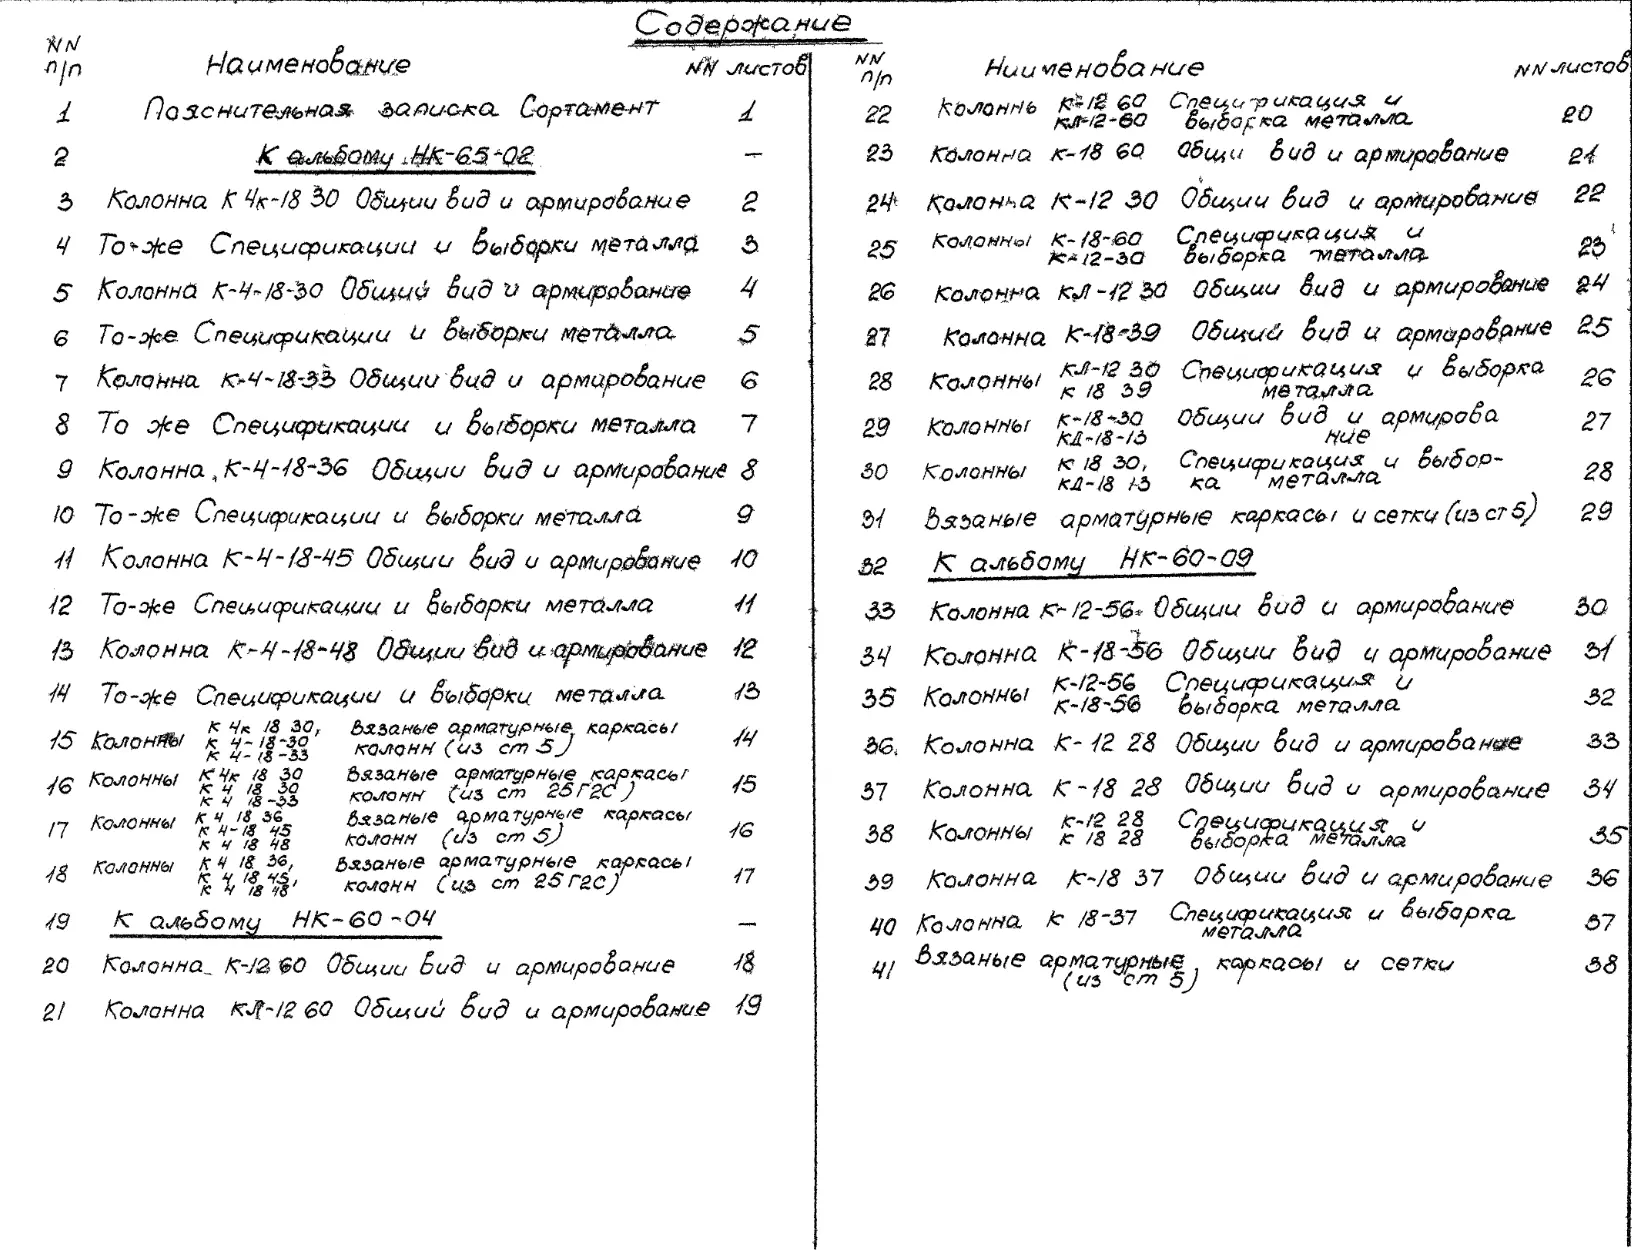 Содержание
NN
п/п Наименование NN листов
1 Пояснительная записка Сортамент 1
2 К альбому НК-65-02 —
3 Колонна К 4к-18 30 Общии вид и армирование 2
4 То-же Спецификации и выборки металла 3
5 Колонна К-4-18-30 Общий вид и армирование 4
6 То-же Спецификации и выборки металла 5
7 Колонна К-4-18-33 Общии вид и армирование 6
8 То же Спецификации и выборки металла 7
9 Колонна К-4-18-36 Общии вид и армирование 8
10 То-же Спецификации и выборки металла 9
11 Колонна К-4-18-45 Общии вид и армирование 10
12 То-же Спецификации и выборки металла 11
13 Колонна К-4-18-48 Общии вид и армирование 12
14 То-же Спецификации и выборки металла 13
15 Колонны К 4к 18 30, Вязаные арматурные каркасы 14
К 4-18-30 колонн (из ст 5)
К 4-18-33
16 Колонны К 4к 18 30 Вязаные арматурные каркасы 15
К 4 18 30 колонн (из ст 25Г2С)
К 4 18-33
17 Колонны К 4 18 36 Вязаные арматурные каркасы 16
К 4-18 45 колонн (из ст 5)
К 4 18 48
18 Колонны К 4 18 36, Вязаные арматурные каркасы 17
К 4 18 45, колонн (из ст 25Г2С)
К 4 18 48
19 К альбому НК-60-04 —
20 Колонна К-12 60 Общии вид и армирование 18
21 Колонна КЛ-12 60 Общий вид и армирование 19
NN
п/п Ниименование NN листов
22 Колоннь К-12 60 Спецификация и 20
КЛ-12-60 выборка металла
23 Колонна К-18 60 Общи вид и армирование 21
24 Колонна К-12 30 Общии вид и армирование 22
25 Колонны К-18-60 Спецификация и 23
К-12-30 выборка металла
26 Колонна КЛ-12 30 Общии вид и армирование 24
27 Колонна К-18-39 Общий вид и армирование 25
28 Колонны КЛ-12 30 Спецификация и выборка 26
К 18 39 металла
29 Колонны К-18-30 Общии вид и армирова 27
КД-18-13 ние
30 Колонны К 18 30, Спецификация и выбор- 28
КД-18 13 ка металла
31 Вязаные арматурные каркасы и сетки (из ст 5) 29
32 К альбому НК-60-09
33 Колонна К-12-56 Общии вид и армирование 30
34 Колонна К-18-56 Общии вид и армирование 31
35 Колонны К-12-56 Спецификация и 32
К-18-56 выборка металла
36. Колонна К-12 28 Общии вид и армирование 33
37 Колонна К-18 28 Общии вид и армирование 34
38 Колонны К-12 28 Спецификация и 35
К 18 28 выборка металла
39 Колонна К-18 37 Общии вид и армирование 36
40 Колонна К 18-37 Спецификация и выборка 37
металла
41 Вязаные арматурные каркасы и сетки 38
(из ст 5)